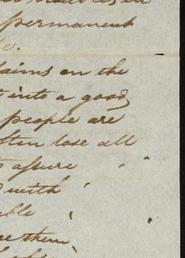 permanent
e.
claims on the
t into a good
people are
often lose all
to assure
with
ble
re them,